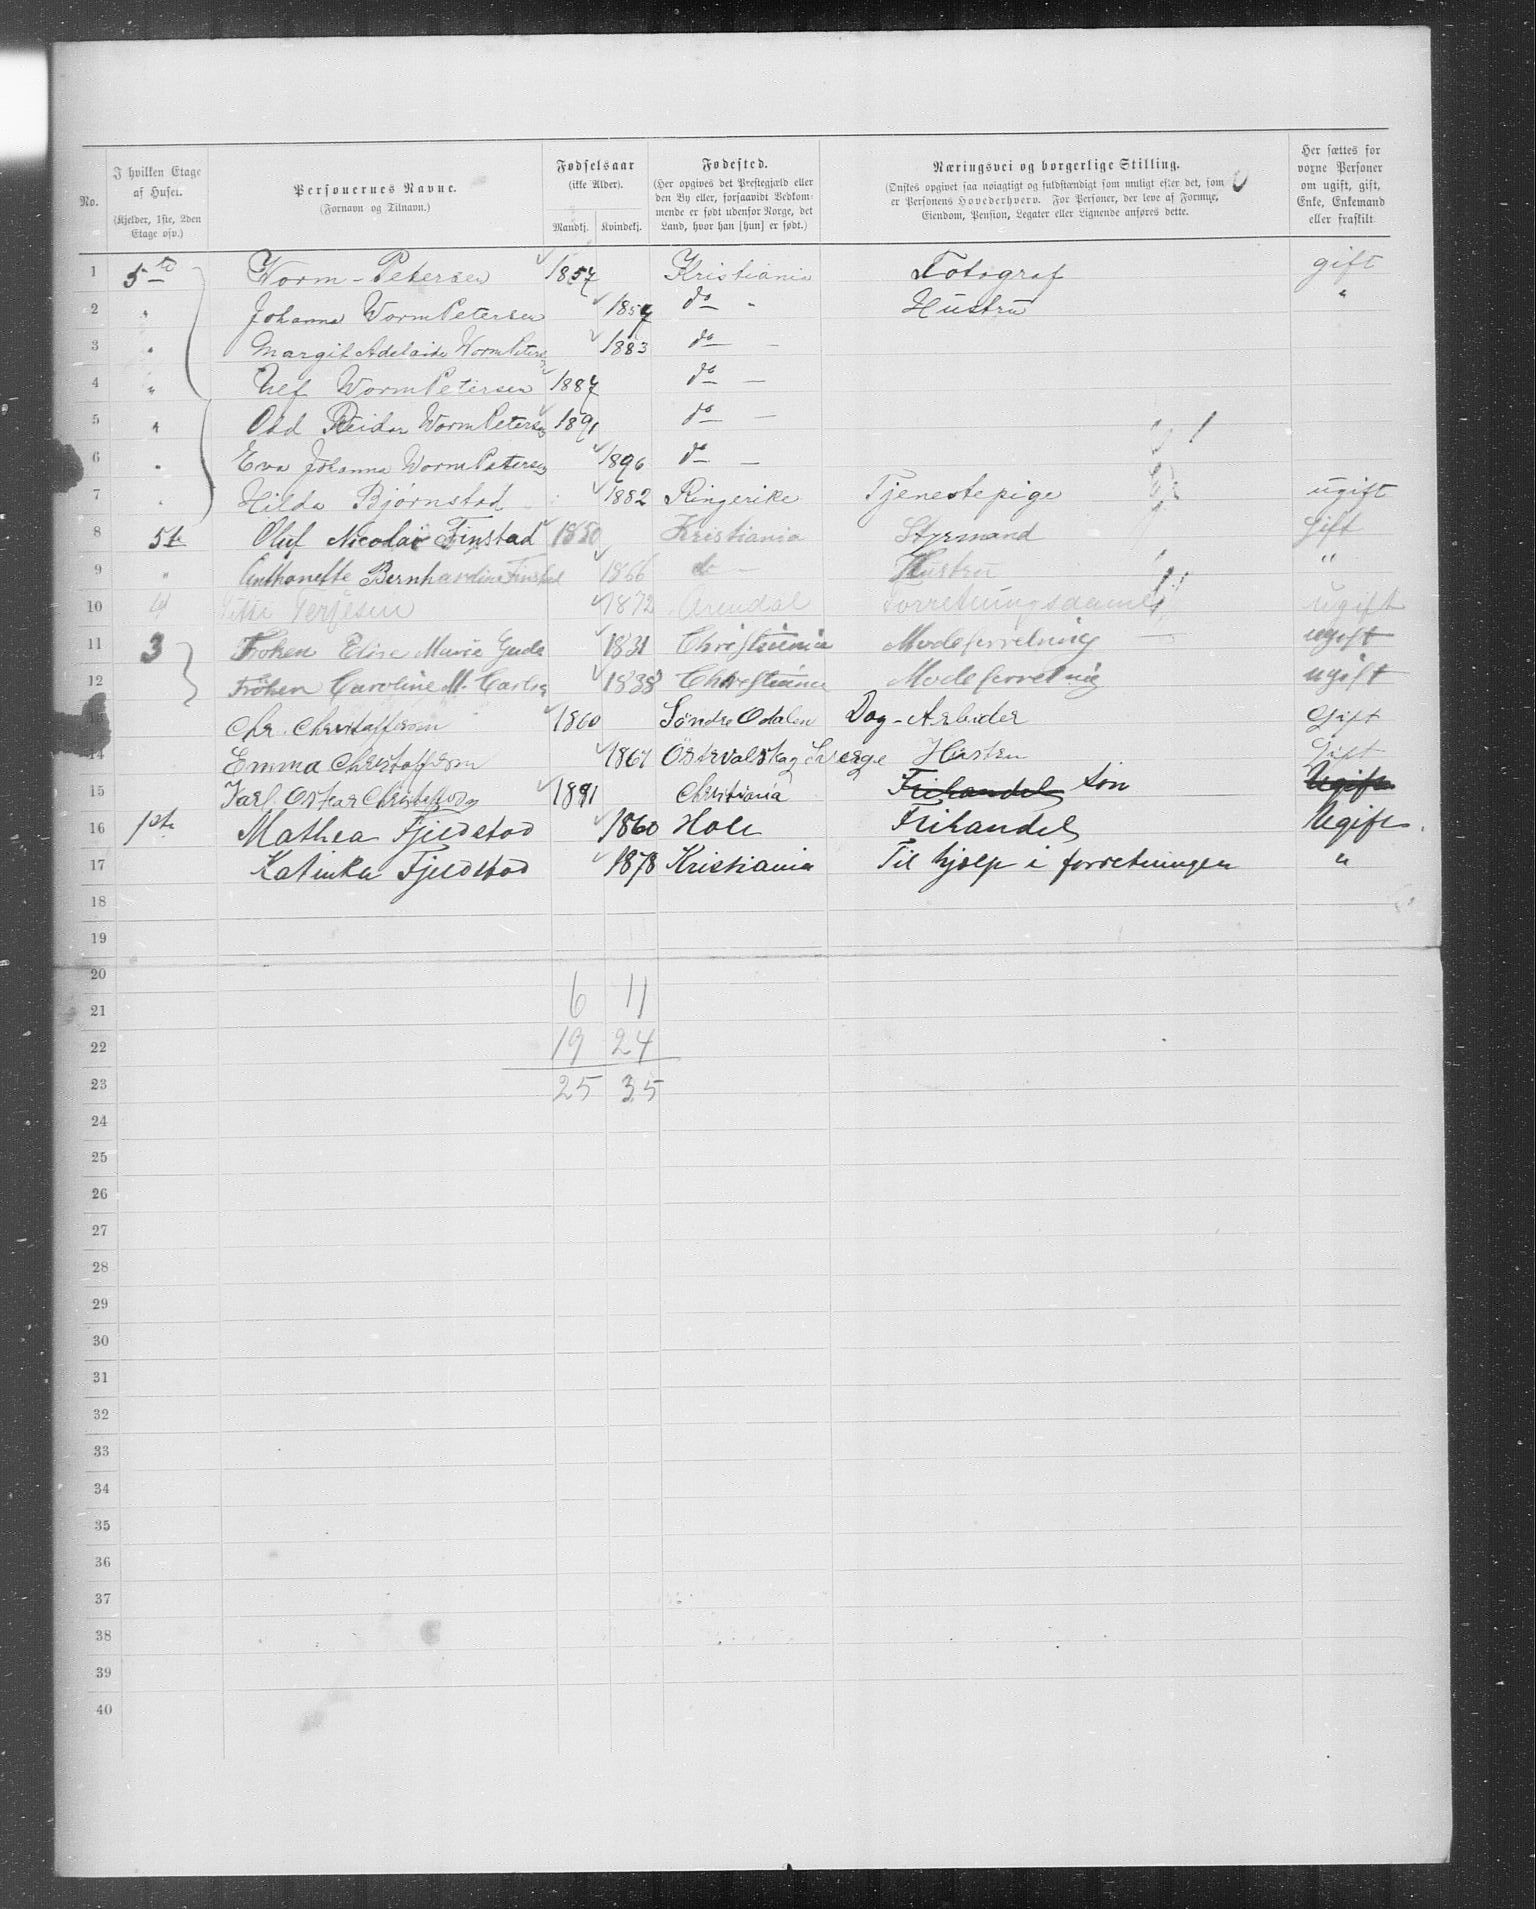 No.	I hvilken Etage af Huset. (Kjelder, 1ste, 2den Etage osv.)	Personernes Navne. (Fornavn og Tilnavn.)	Fødselsaar (ikke Alder). Mandkj.	Kvindekj.	Fødested. (Her opgives det Prestegjæld eller den By eller, forsaavidt Vedkommende er født udenfor Norge, det Land, hvor han [hun] er født.)	Næringsvei og borgerlige Stilling. (Ønskes opgivet saa nøiagtigt og fuldstændigt som muligt efter det, som er Personens Hovederhverv. For Personer, der leve af Formue, Eiendom, Pension, Legater eller Lignende anføres dette.	Her sættes for voxne Personer om ugift, gift, Enke, Enkemand eller fraskilt
1	5te	Worm-Petersen	1857		Kristiania	Fotograf	gift
2	"	Johanna Worm Petersen		1857	do "	Hustru	"
3	"	Margit Adelaide Worm Peters		1883	do —
4	"	Ulf Worm Petersen	1887		do —
5	"	Odd Reidar Worm Petersen	1891		do —
6	"	Eva Johanna Worm Petersen		1896	do —
7	"	Hilda Bjørnstad		1882	Ringerike	Tjenestepige	ugift
8	5te	Oluf Nicolai Finstad	1850		Kristiania	Styrmand	Gift
9	"	Anthonette Bernhardine Finstad		1866	do —	Hustru	"
10	4	Terjesen		1872	Arendal	Forretningsdame	ugift
11	3	Frøken Elise Marie Gude		1831	Christiania	Modeforretning	ugift
12		Frøken Caroline M. Carlsen		1838	Christiania	Modeforretning	ugift
13		Chr. Christoffersen	1860		Søndre Odalen	Dag-Arbeider	Gift
14		Emma Christoffersen		1867	Sverge	Hustru	Gift
15		Karl Oskar Christoffersen	1891		Christiania	Frihandel Søn	Ugift
16	1ste	Mathea Fjeldstad		1860	Hole	Frihandel	Ugift.
17		Katinka Fjeldstad		1878	Kristiania	Til hjælp i forretningen	"
18
19
20
21	6	11
22	19	24
23	25	35
24
25
26
27
28
29
30
31
32
33
34
35
36
37
38
39
40